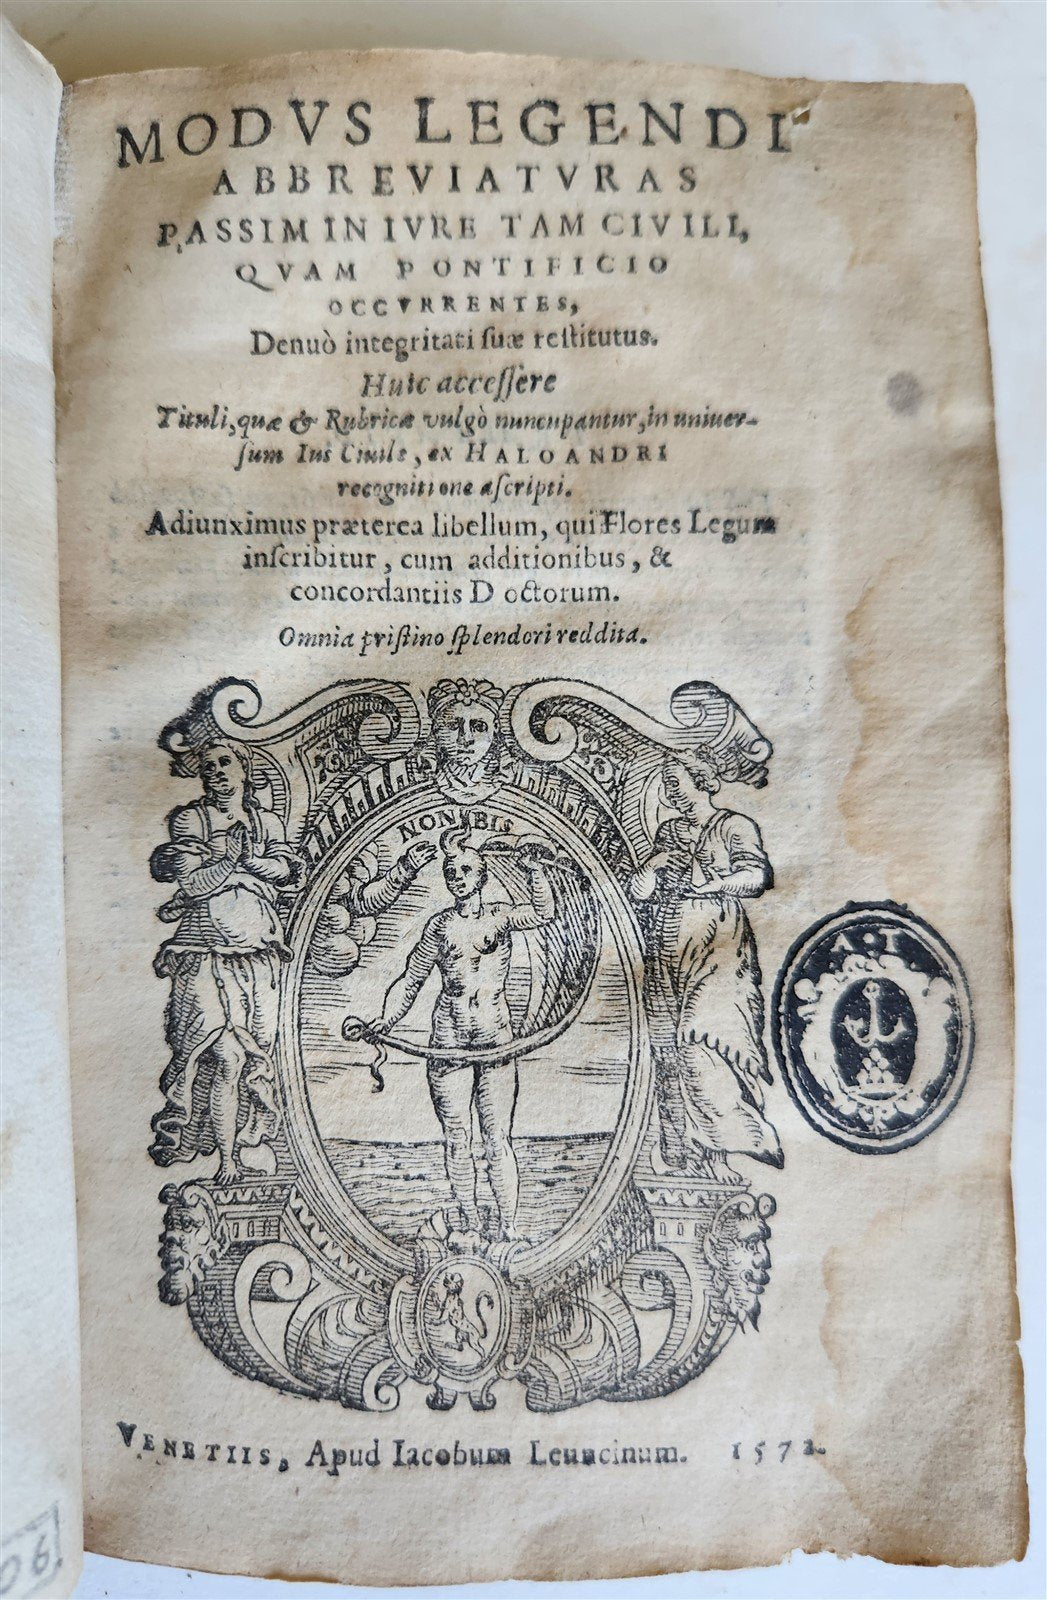 MODVS LEGENDI
ABBREVIATVRAS
PASSIM IN IVRE TAM CIVILI,
QVAM PONTIFICIO
OCCVRRENTES,
Denuò integritati ſuæ reſtitutus.
Huic acceſſere
Tituli, quæ & Rubricæ vulgò nuncupantur, in uniuer-
ſum Ius Ciuile, ex HALOANDRI
recognitione aſcripti.
Adiunximus præterea libellum, qui Flores Legum
inſcribitur, cum additionibus, &
concordantiis Doctorum.
Omnia priſtino ſplendori reddita.
NON BIS
VENETIIS, Apud Iacobum Leuncinum. 1572.